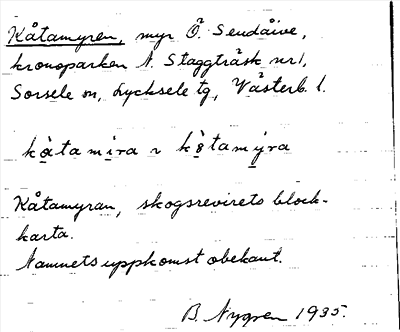 Kåtamyren, myr Ö. Sendåive,
kronoparken N. Staggträsk nr 1,
Sorsele sn, Lycksele tg, Västerb. l.
kåtamira ~ kåtamyra
Kåtamyran, skogsrevirets block-
karta.
Namnets uppkomst obekant.
B. Nygren 1935.